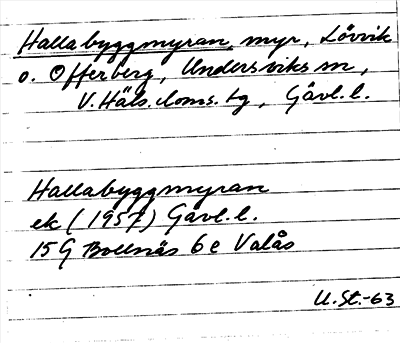 Hallabyggmyran, myr, Lövvik
o. Offerberg, Undersviks sn,
V. Häls. doms. tg, Gävl. l.
Hallabyggmyran
ek (1957) Gävl. l.
15 G Bollnäs 6 e Valås
U. St.-63